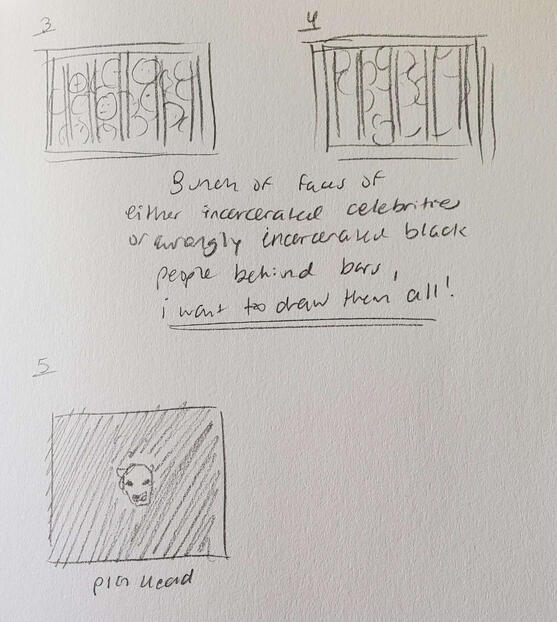 3
4
Bunch of faces of
either incarcerated celebrities
or wrongly incarcerated black
people behind bars,
i want to draw them all!
5
PIG Head